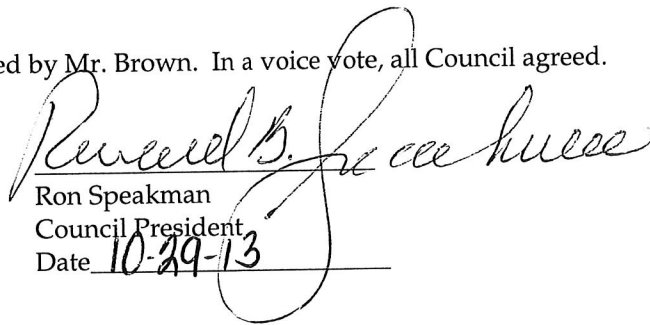 ed by Mr. Brown. In a voice vote, all Council agreed.
B. Speakman
Ron Speakman
Council President
Date 10-29-13